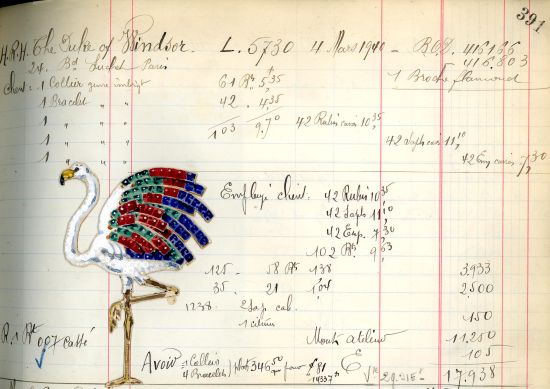 391
H.R.H. The Duke of Windsor. L. 5730 4 Mars 1940 - B.O.D. 416136
24. Bd Suchet - Paris 416.803
Client: 1 Collier genre indoust 61 Bts 5,35 1 Broche flamand
1 Bracelet " " 42 . 4,35
1 " " 103 9,70 42 Rubis carrés 10 35
1 " " 42 Saphs carrés 11 10
1 " " 42 Em carrées 7,30
Employé client. 42 Rubis 10 35
42 Saphs 11 10
42 Em. 7 30
102 Bts 9,63
125 - 58 Bts 1 38 3.933
35 . 21 1 04 2.500
1238 2 Sap cab. 150
1 citrine
Monts Atelier 11.250
R. 1 Bt 007 Cassé 105
Avoir 1 Collier
4 Bracelets 346 50 pour $ 81 17.938
14337